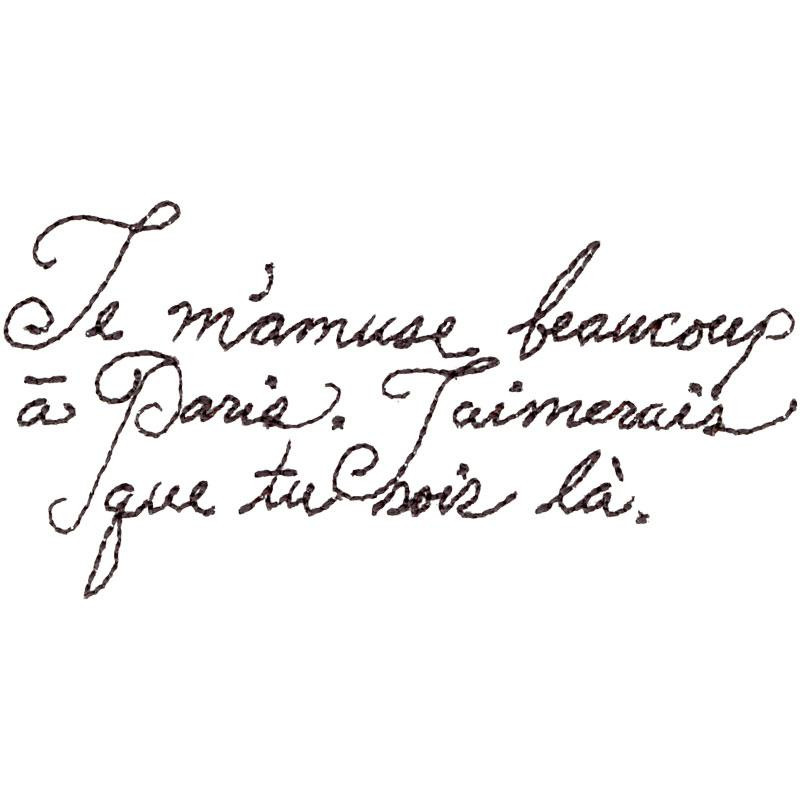 Je m'amuse beaucoup
à Paris. J'aimerais
que tu sois là.